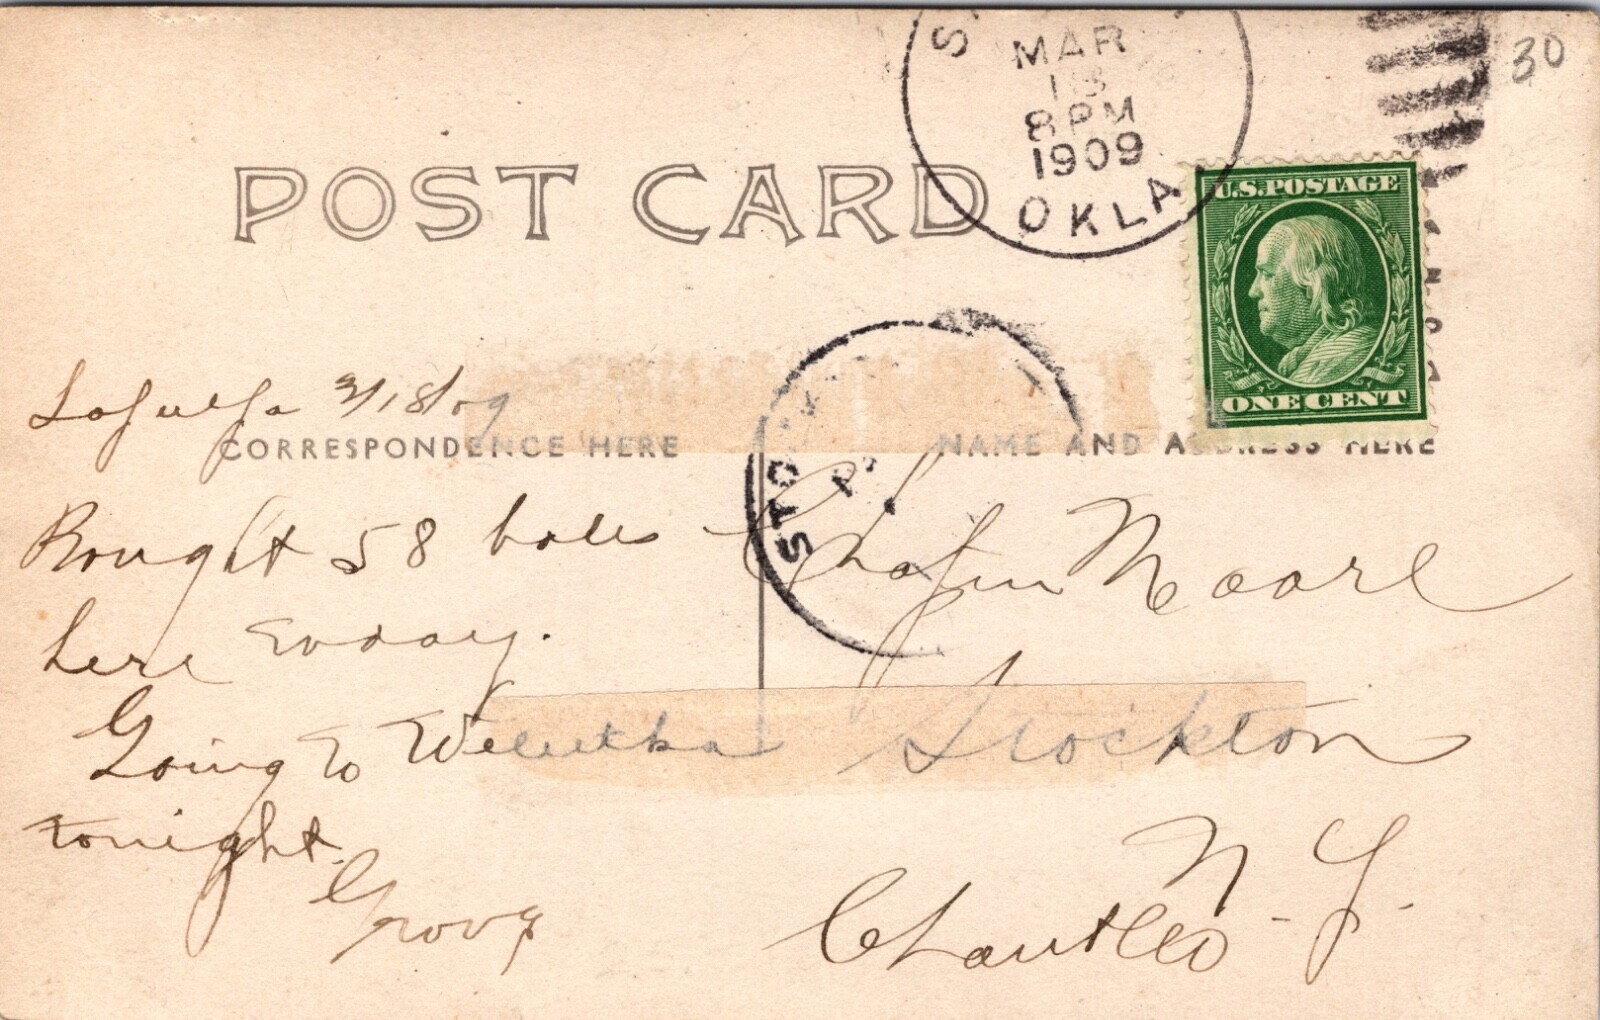 S
MAR
18
8 PM
1909
OKLA
30
POST CARD
U.S. POSTAGE
ONE CENT
3/18/09
CORRESPONDENCE HERE
NAME AND ADDRESS HERE
STOCK
Bought 58 bales
here today.
Going to Weleetka
tonight.
Moore
Stockton
N. J.